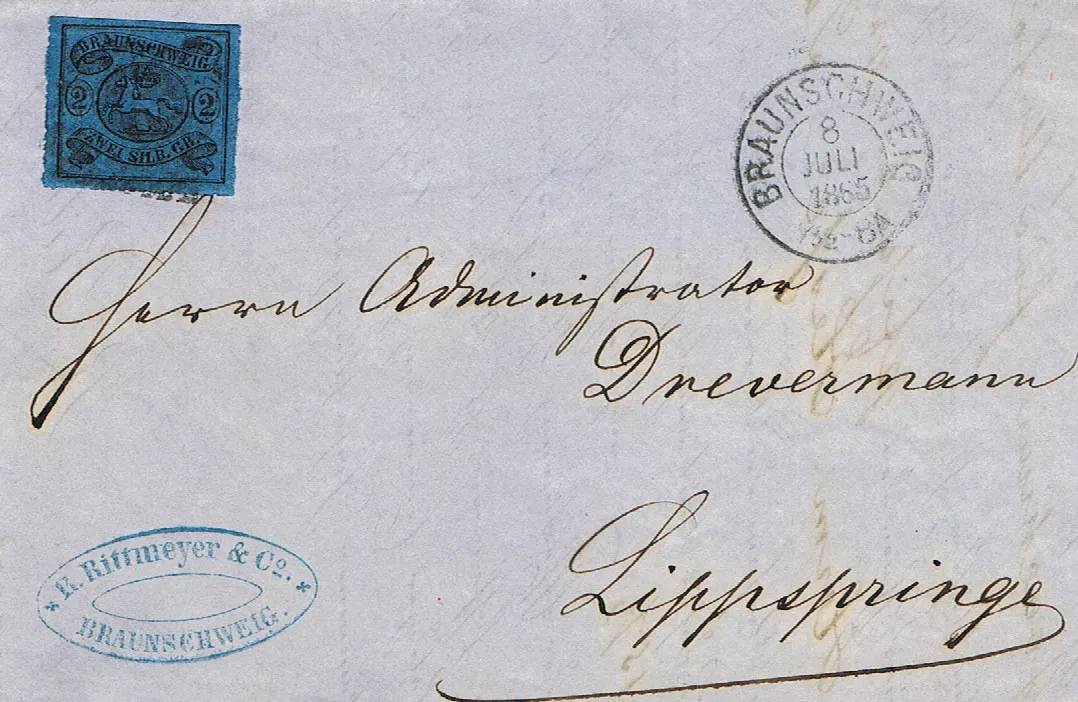 BRAUNSCHWEIG
2 2
ZWEI SILB. GR.
BRAUNSCHWEIG
8
JULI
1865
Herrn Administrator
Drevermann
Lippspringe
* H. Rittmeyer & Co. *
BRAUNSCHWEIG.